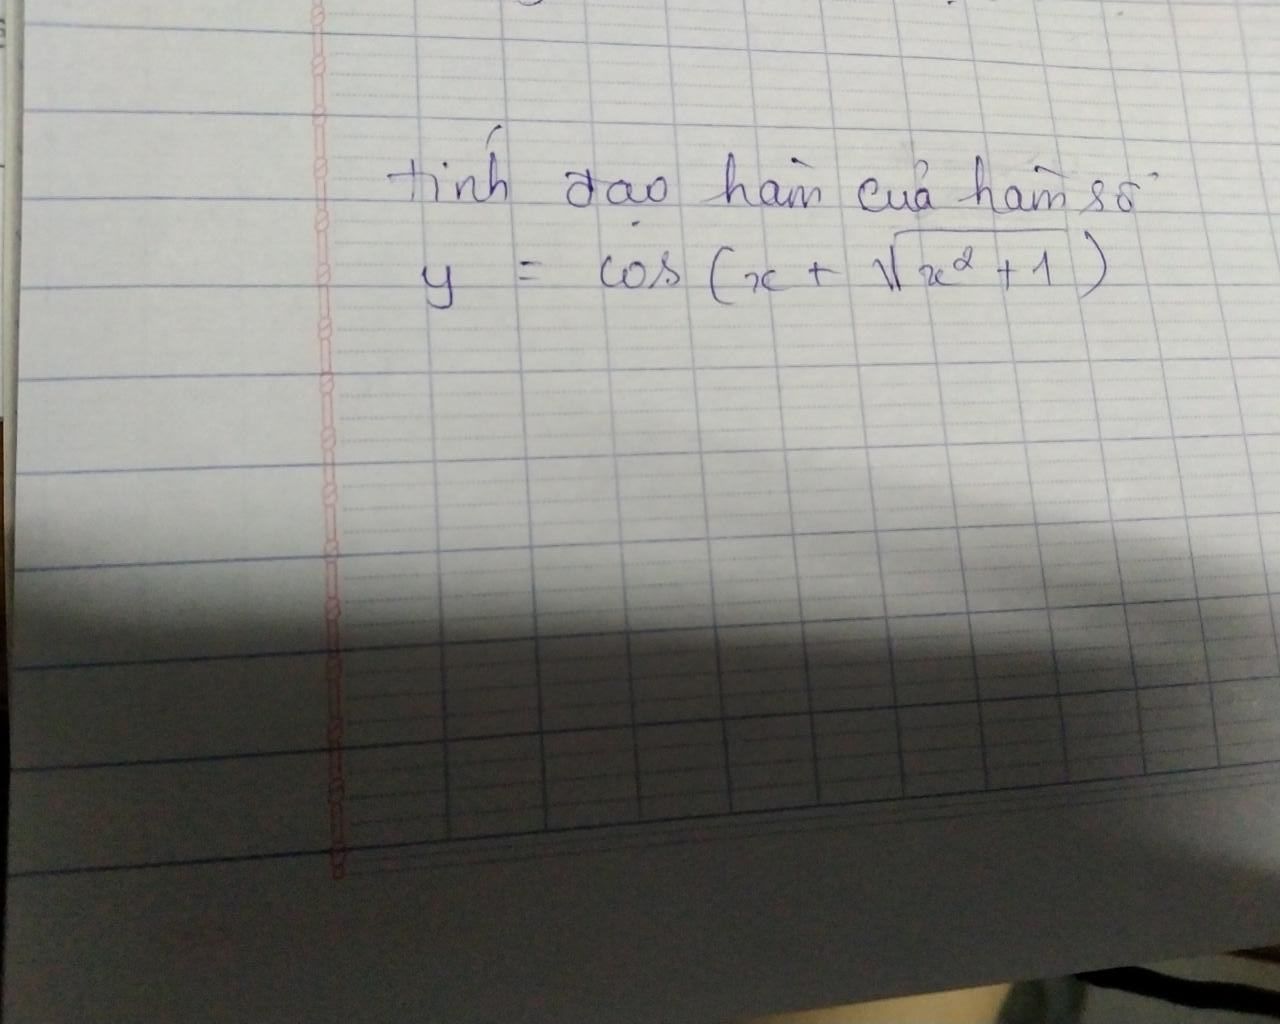 tính đạo hàm của hàm số
y = cos (x + √x² + 1)